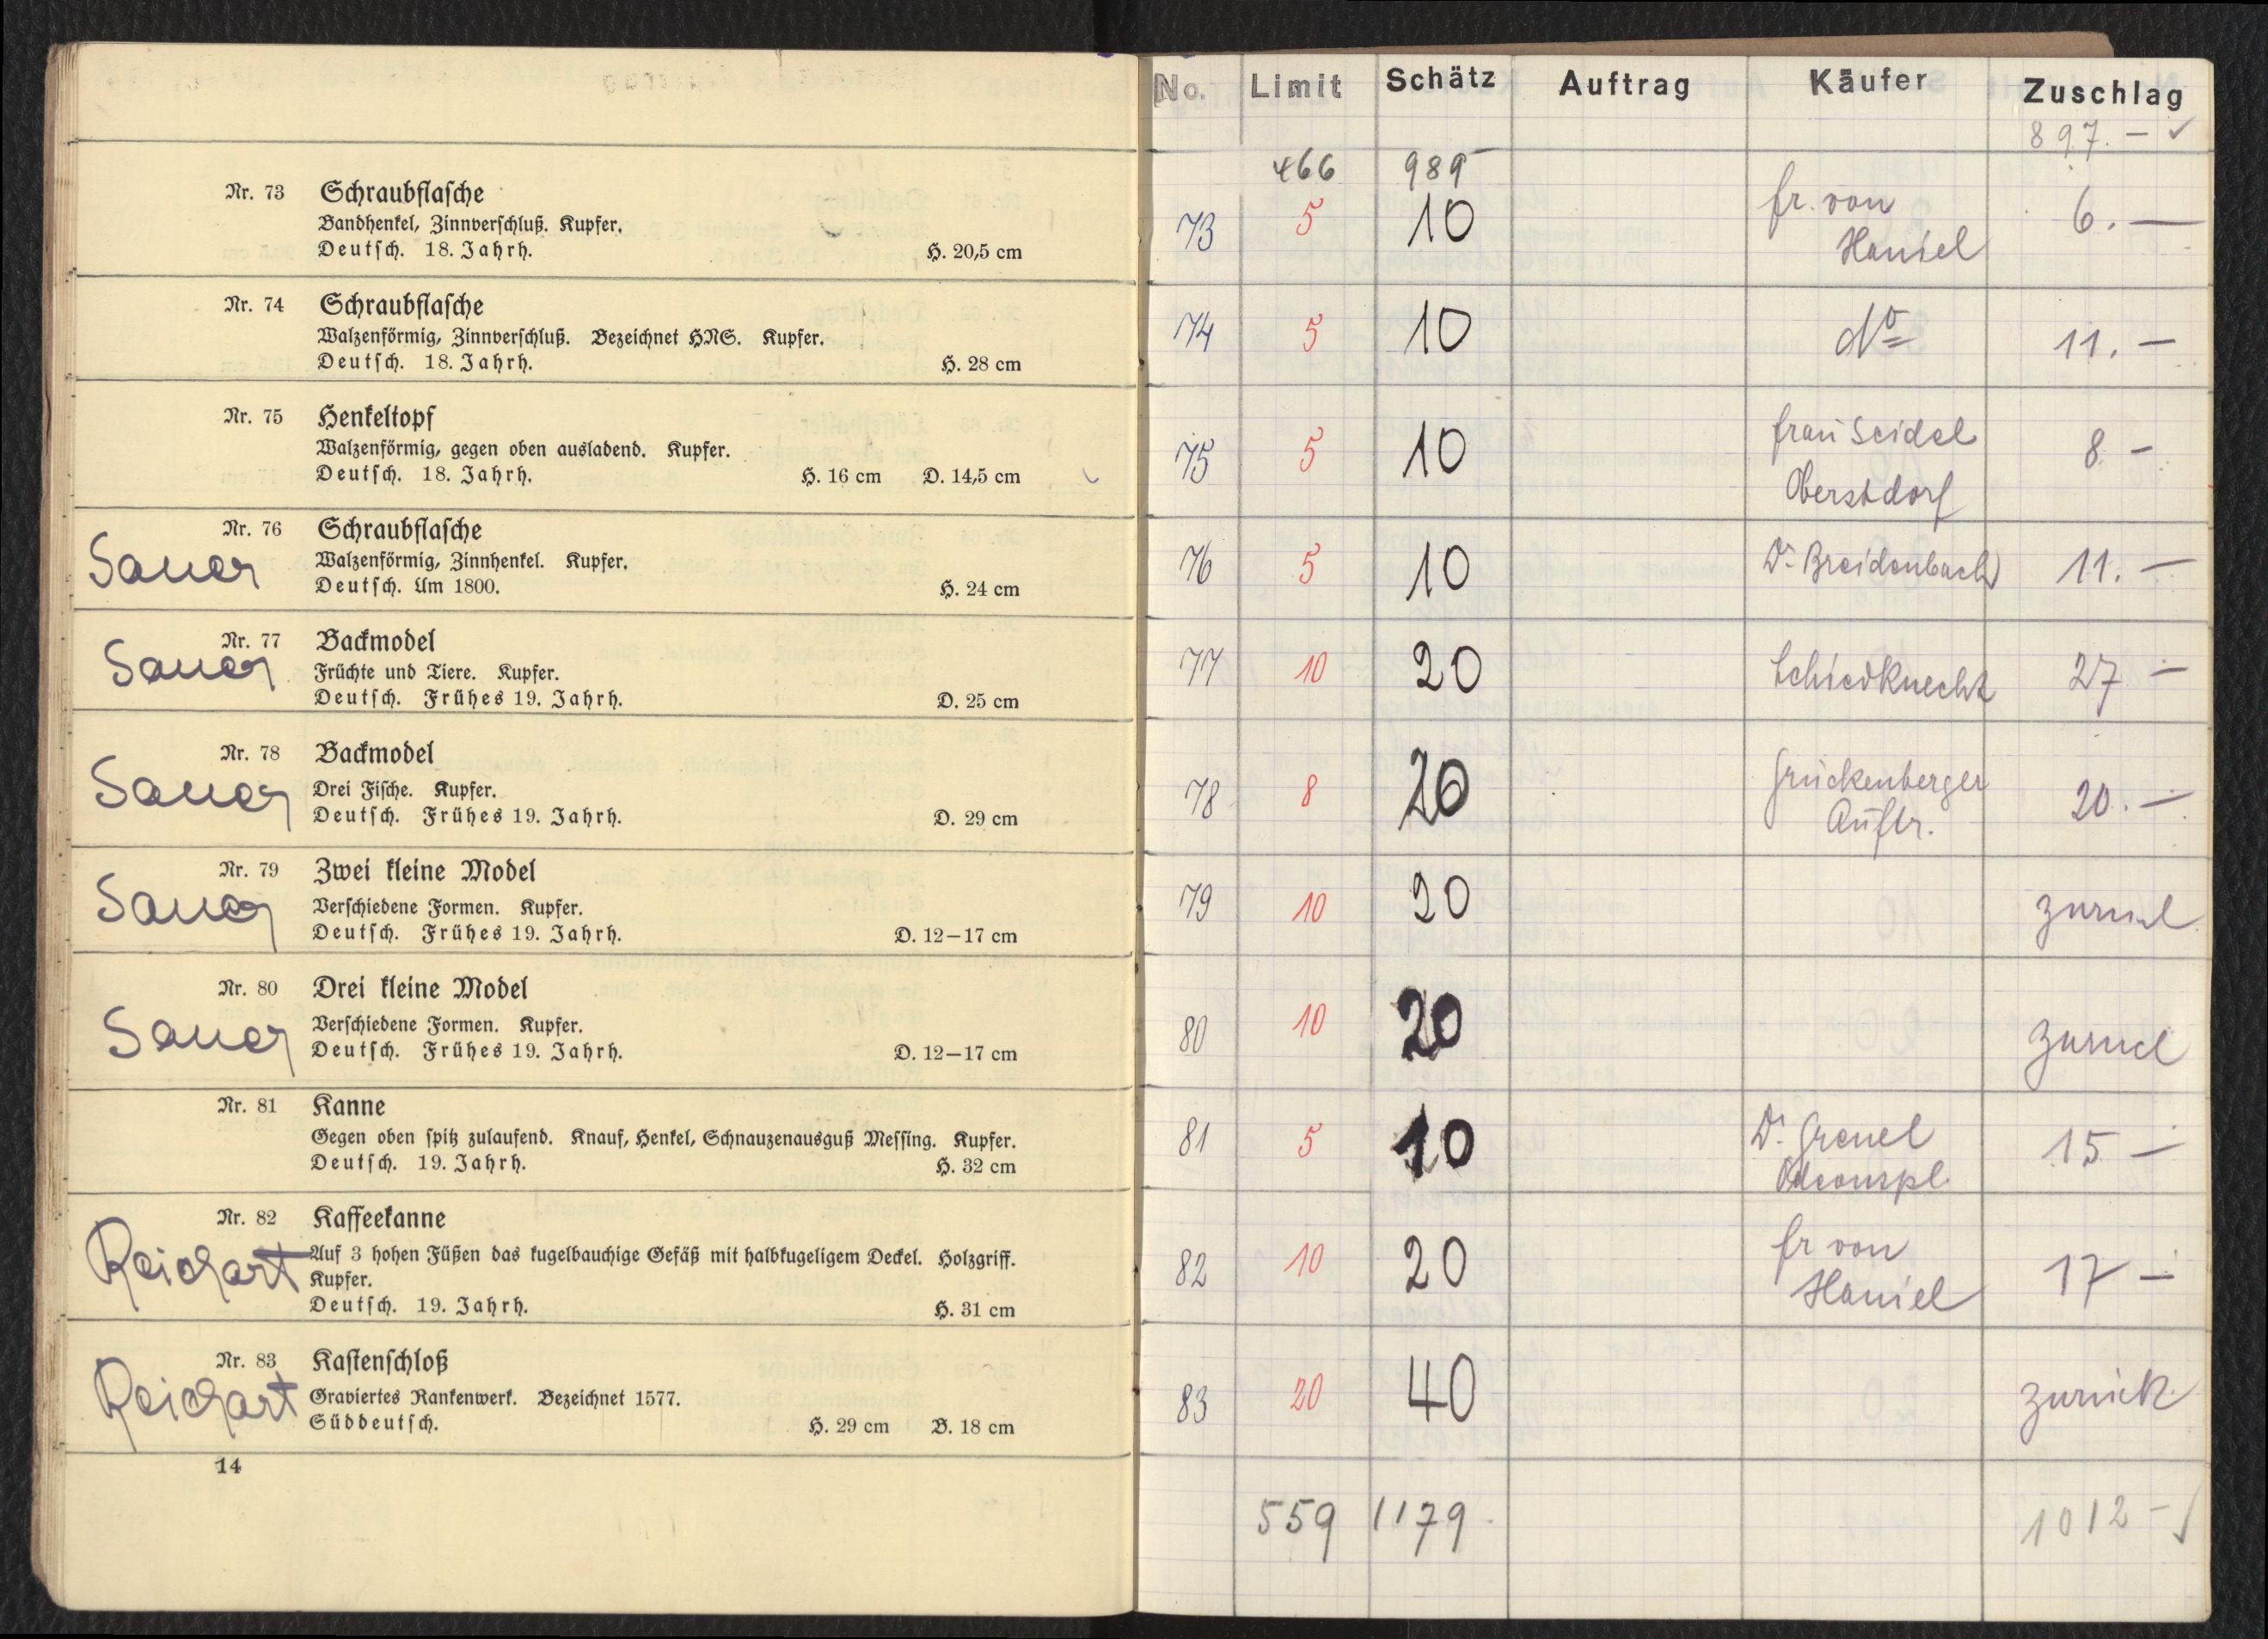 Nr. 73 Schraubflasche
Bandhenkel, Zinnverschluß. Kupfer.
Deutsch. 18. Jahrh. H. 20,5 cm
Nr. 74 Schraubflasche
Walzenförmig, Zinnverschluß. Bezeichnet HNS. Kupfer.
Deutsch. 18. Jahrh. H. 28 cm
Nr. 75 Henkeltopf
Walzenförmig, gegen oben ausladend. Kupfer.
Deutsch. 18. Jahrh. H. 16 cm D. 14,5 cm
Nr. 76 Schraubflasche
Sauer
Walzenförmig, Zinnhenkel. Kupfer.
Deutsch. Um 1800. H. 24 cm
Nr. 77 Backmodel
Sauer
Früchte und Tiere. Kupfer.
Deutsch. Frühes 19. Jahrh. D. 25 cm
Nr. 78 Backmodel
Sauer
Drei Fische. Kupfer.
Deutsch. Frühes 19. Jahrh. D. 29 cm
Nr. 79 Zwei kleine Model
Sauer
Verschiedene Formen. Kupfer.
Deutsch. Frühes 19. Jahrh. D. 12–17 cm
Nr. 80 Drei kleine Model
Sauer
Verschiedene Formen. Kupfer.
Deutsch. Frühes 19. Jahrh. D. 12–17 cm
Nr. 81 Kanne
Gegen oben spitz zulaufend. Knauf, Henkel, Schnauzenausguß Messing. Kupfer.
Deutsch. 19. Jahrh. H. 32 cm
Nr. 82 Kaffeekanne
Reichart
Auf 3 hohen Füßen das kugelbauchige Gefäß mit halbkugeligem Deckel. Holzgriff.
Kupfer.
Deutsch. 19. Jahrh. H. 31 cm
Nr. 83 Kastenschloß
Reichart
Graviertes Rankenwerk. Bezeichnet 1577.
Süddeutsch. H. 29 cm B. 18 cm
14
No. Limit Schätz Auftrag Käufer Zuschlag
897.— ✓
466 989
73 5 10 fr. von Haniel 6.—
74 5 10 do 11.—
75 5 10 frau Seidel 8.—
Oberstdorf
76 5 10 Dr. Breidenbach 11.—
77 10 20 Schiedknecht 27 —
78 8 20 20.—
Auftr.
79 10 20 zurück
80 10 20 zurück
81 5 10 Dr. 15 —
Odeonspl.
82 10 20 fr von Haniel 17 —
83 20 40 zurück
559 1179 1012 — ✓